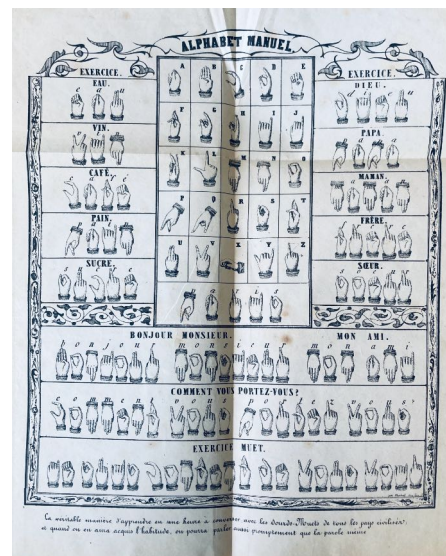 ALPHABET MANUEL.
EXERCICE.
EAU.
e a u
VIN.
v i n
CAFÉ.
c a f é
PAIN.
p a i n
SUCRE.
s u c r e
A B C D E
F G H I J
K L M N O
P Q R S T
U V X Y Z
p a r i s
EXERCICE.
DIEU.
d i e u
PAPA.
p a p a
MAMAN.
m a m a n
FRÈRE.
f r è r e
SŒUR.
s o e u r
BONJOUR MONSIEUR.
b o n j o u r m o n s i e u r
MON AMI.
m o n a m i
COMMENT VOUS PORTEZ-VOUS?
c o m m e n t v o u s p o r t e z v o u s
EXERCICE MUET.
La véritable manière d'apprendre en une heure à converser avec les Sourds-Muets de tous les pays civilisés,
et quand on en aura acquis l'habitude, on pourra parler aussi promptement que la parole même